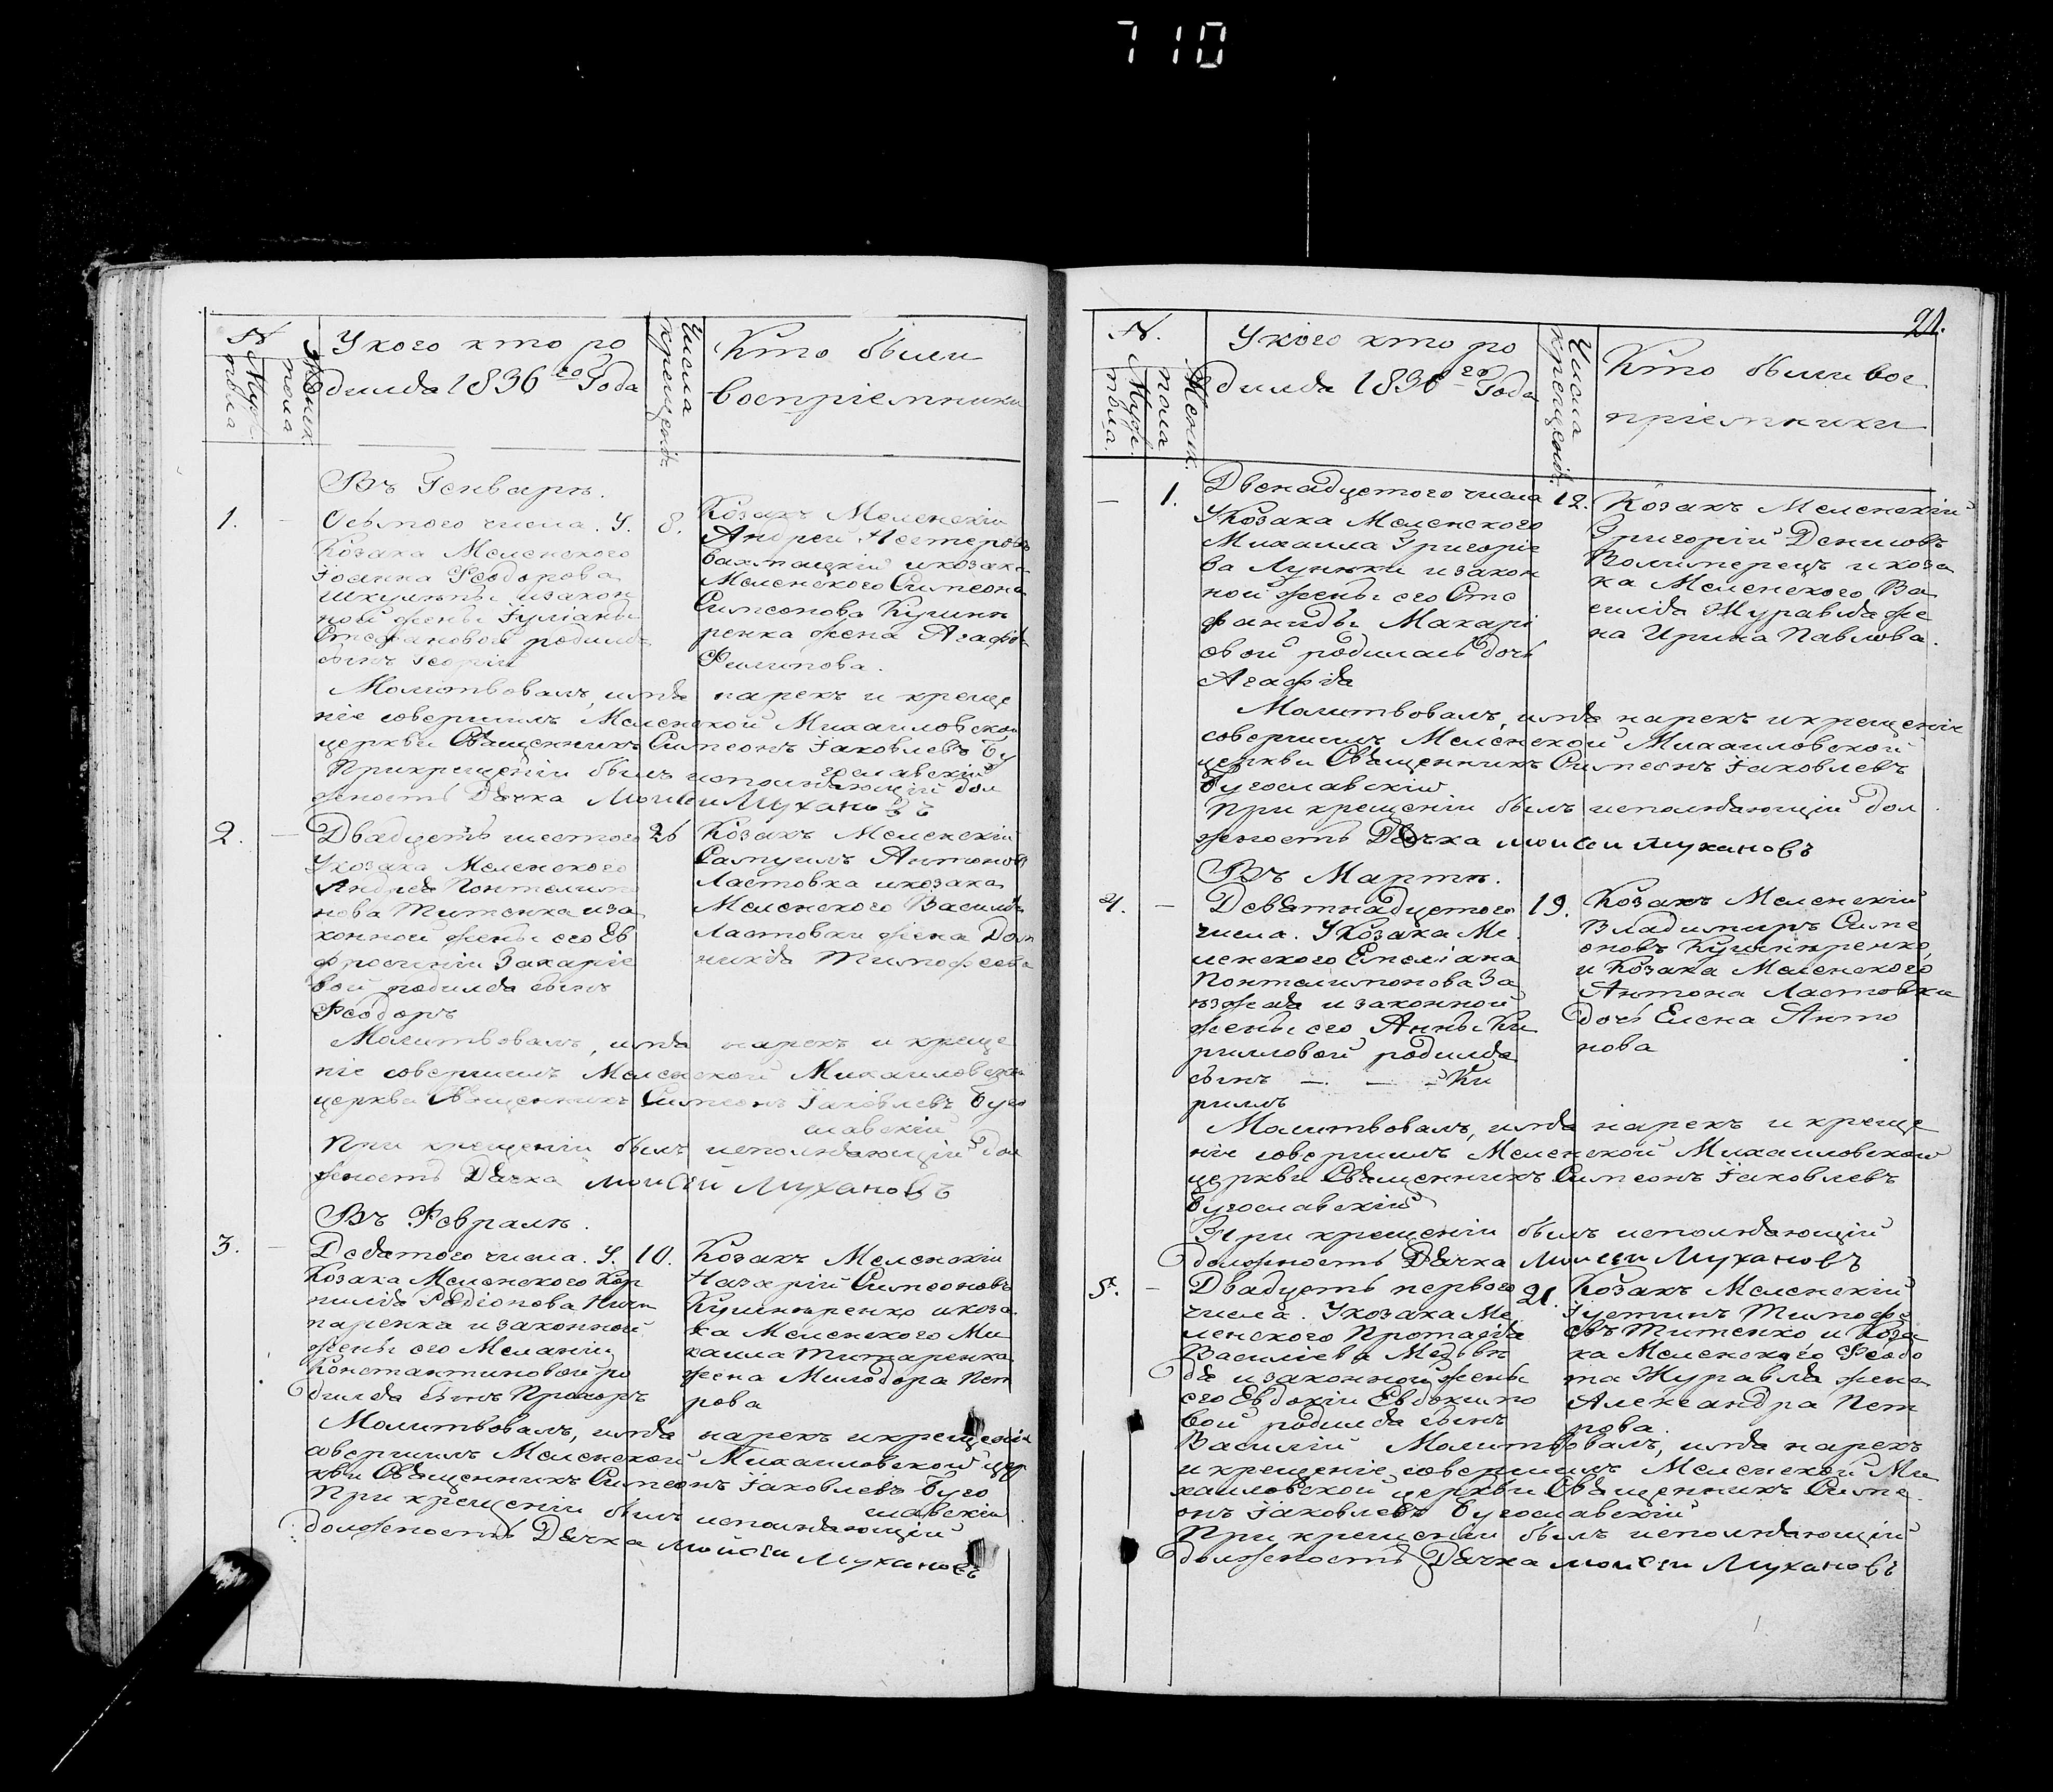 710
№
Муж.
пола
Женск.
пола
У кого кто ро
дился 1836го Года
Числа
крещенія
Кто были
воспріемники
Въ Генваръ.
1.
Осьмого числа. У
Козака Меленского
Іоанна Феодорова
и закон
ной жены Іуліаны
Стефановой родился
сынъ Георгій
8.
Козакъ Меленскій
Андрей Нестеровъ
Бахмацкій и козака
Меленского Симеона
Симеонова Кушни
ренка жена Агафія
Филипова.
Молитвовалъ, имя нарекъ и креще
ніе совершилъ Меленской Михаиловской
церкви Священникъ Симеонъ Іаковлевъ Бу
гославскій
При крещеніи былъ исполняющій дол
жность Дячка Моисей Мухановъ
2.
Двадцять шестого
У козака Меленского
Андрея Понтелимо
нова Титенка и за
конной жены его Ев
фросиніи Захаріе
вой родился сынъ
Феодоръ
26
Козакъ Меленскій
Самуилъ Антоновъ
Ластовка и козака
Меленского Василія
Ластовки жена Дом
никія Тимофеева
Молитвовалъ, имя нарекъ и креще
ніе совершилъ Меленской Михаиловской
церкви Священникъ Симеонъ Іаковлевъ Буго
славскій
При крещеніи былъ исполняющій дол
жность Дячка Моисей Мухановъ
Въ Февралъ.
3.
Девятого числа. У
Козака Меленского Кор
нилія Родіонова Ничи
паренка и законной
жены его Меланіи
Константиновой ро
дился сынъ Прохоръ
10.
Козакъ Меленскій
Назарій Симеоновъ
Кушниренко и коза
ка Меленского Ми
хаила Титаренка
жена Милодора Пет
рова
Молитвовалъ, имя нарекъ и крещеніе
совершилъ Меленской Михаиловской цер
кви Священникъ Симеонъ Іаковлевъ Буго
славскій
При крещеніи былъ исполняющій
должность Дячка Моисей Мухановъ
21.
№.
Муж.
пола.
Женск.
пола
У кого кто ро
дился 1836го Года
Числа
крещенія
Кто были вос
пріемники
1.
Двенадцетого числа
У Козака Меленского
Михаила Григоріе
ва Луньки и закон
ной жены его Сте
фаниды Макарі
евой родилась дочь
Агафія
12.
Козакъ Меленскій
Григорій Дениловъ
и коза
ка Меленского Ва
силія Журавля же
на Ирина Павлова.
Молитвовалъ, имя нарекъ и крещеніе
совершилъ Меленской Михаиловской
церкви Священникъ Симеонъ Іаковлевъ
Бугославскій
При крещеніи былъ исполняющій дол
жность Дячка Моисей Мухановъ
Въ Мартъ.
4.
Девятнадцетого
числа. У Козака Ме
ленского Емеліана
Понтелимонова За
и законной
жены его Анны Ки
рилловой родился
сынъ — — — Ки
рилъ
19.
Козакъ Меленскій
Владимиръ Симе
оновъ Кушниренко,
и Козака Меленского
Антона Ластовки
дочь Елена Анто
нова
Молитвовалъ, имя нарекъ и креще
ніе совершилъ Меленской Михаиловской
церкви Священникъ Симеонъ Іаковлевъ
Бугославскій
При крещеніи былъ исполняющій
должность Дячка Моисей Мухановъ
5.
Двадцеть первого
числа. У козака Ме
ленского Протасія
Василіева Медвъ
дя и законной жены
его Евдокіи Евдокимо
вой родился сынъ
Василій
21.
Козакъ Меленскій
Іустинъ Тимофе
евъ Титенко и Коза
ка Меленского Феодо
та Журавля жена
Александра Пет
рова.
Молитвовалъ, имя нарекъ
и крещеніе совершилъ Меленской Ми
хаиловской церкви Священникъ Симе
онъ Іаковлевъ Бугославскій
При крещеніи былъ исполняющій
должность Дячка Моисей Мухановъ